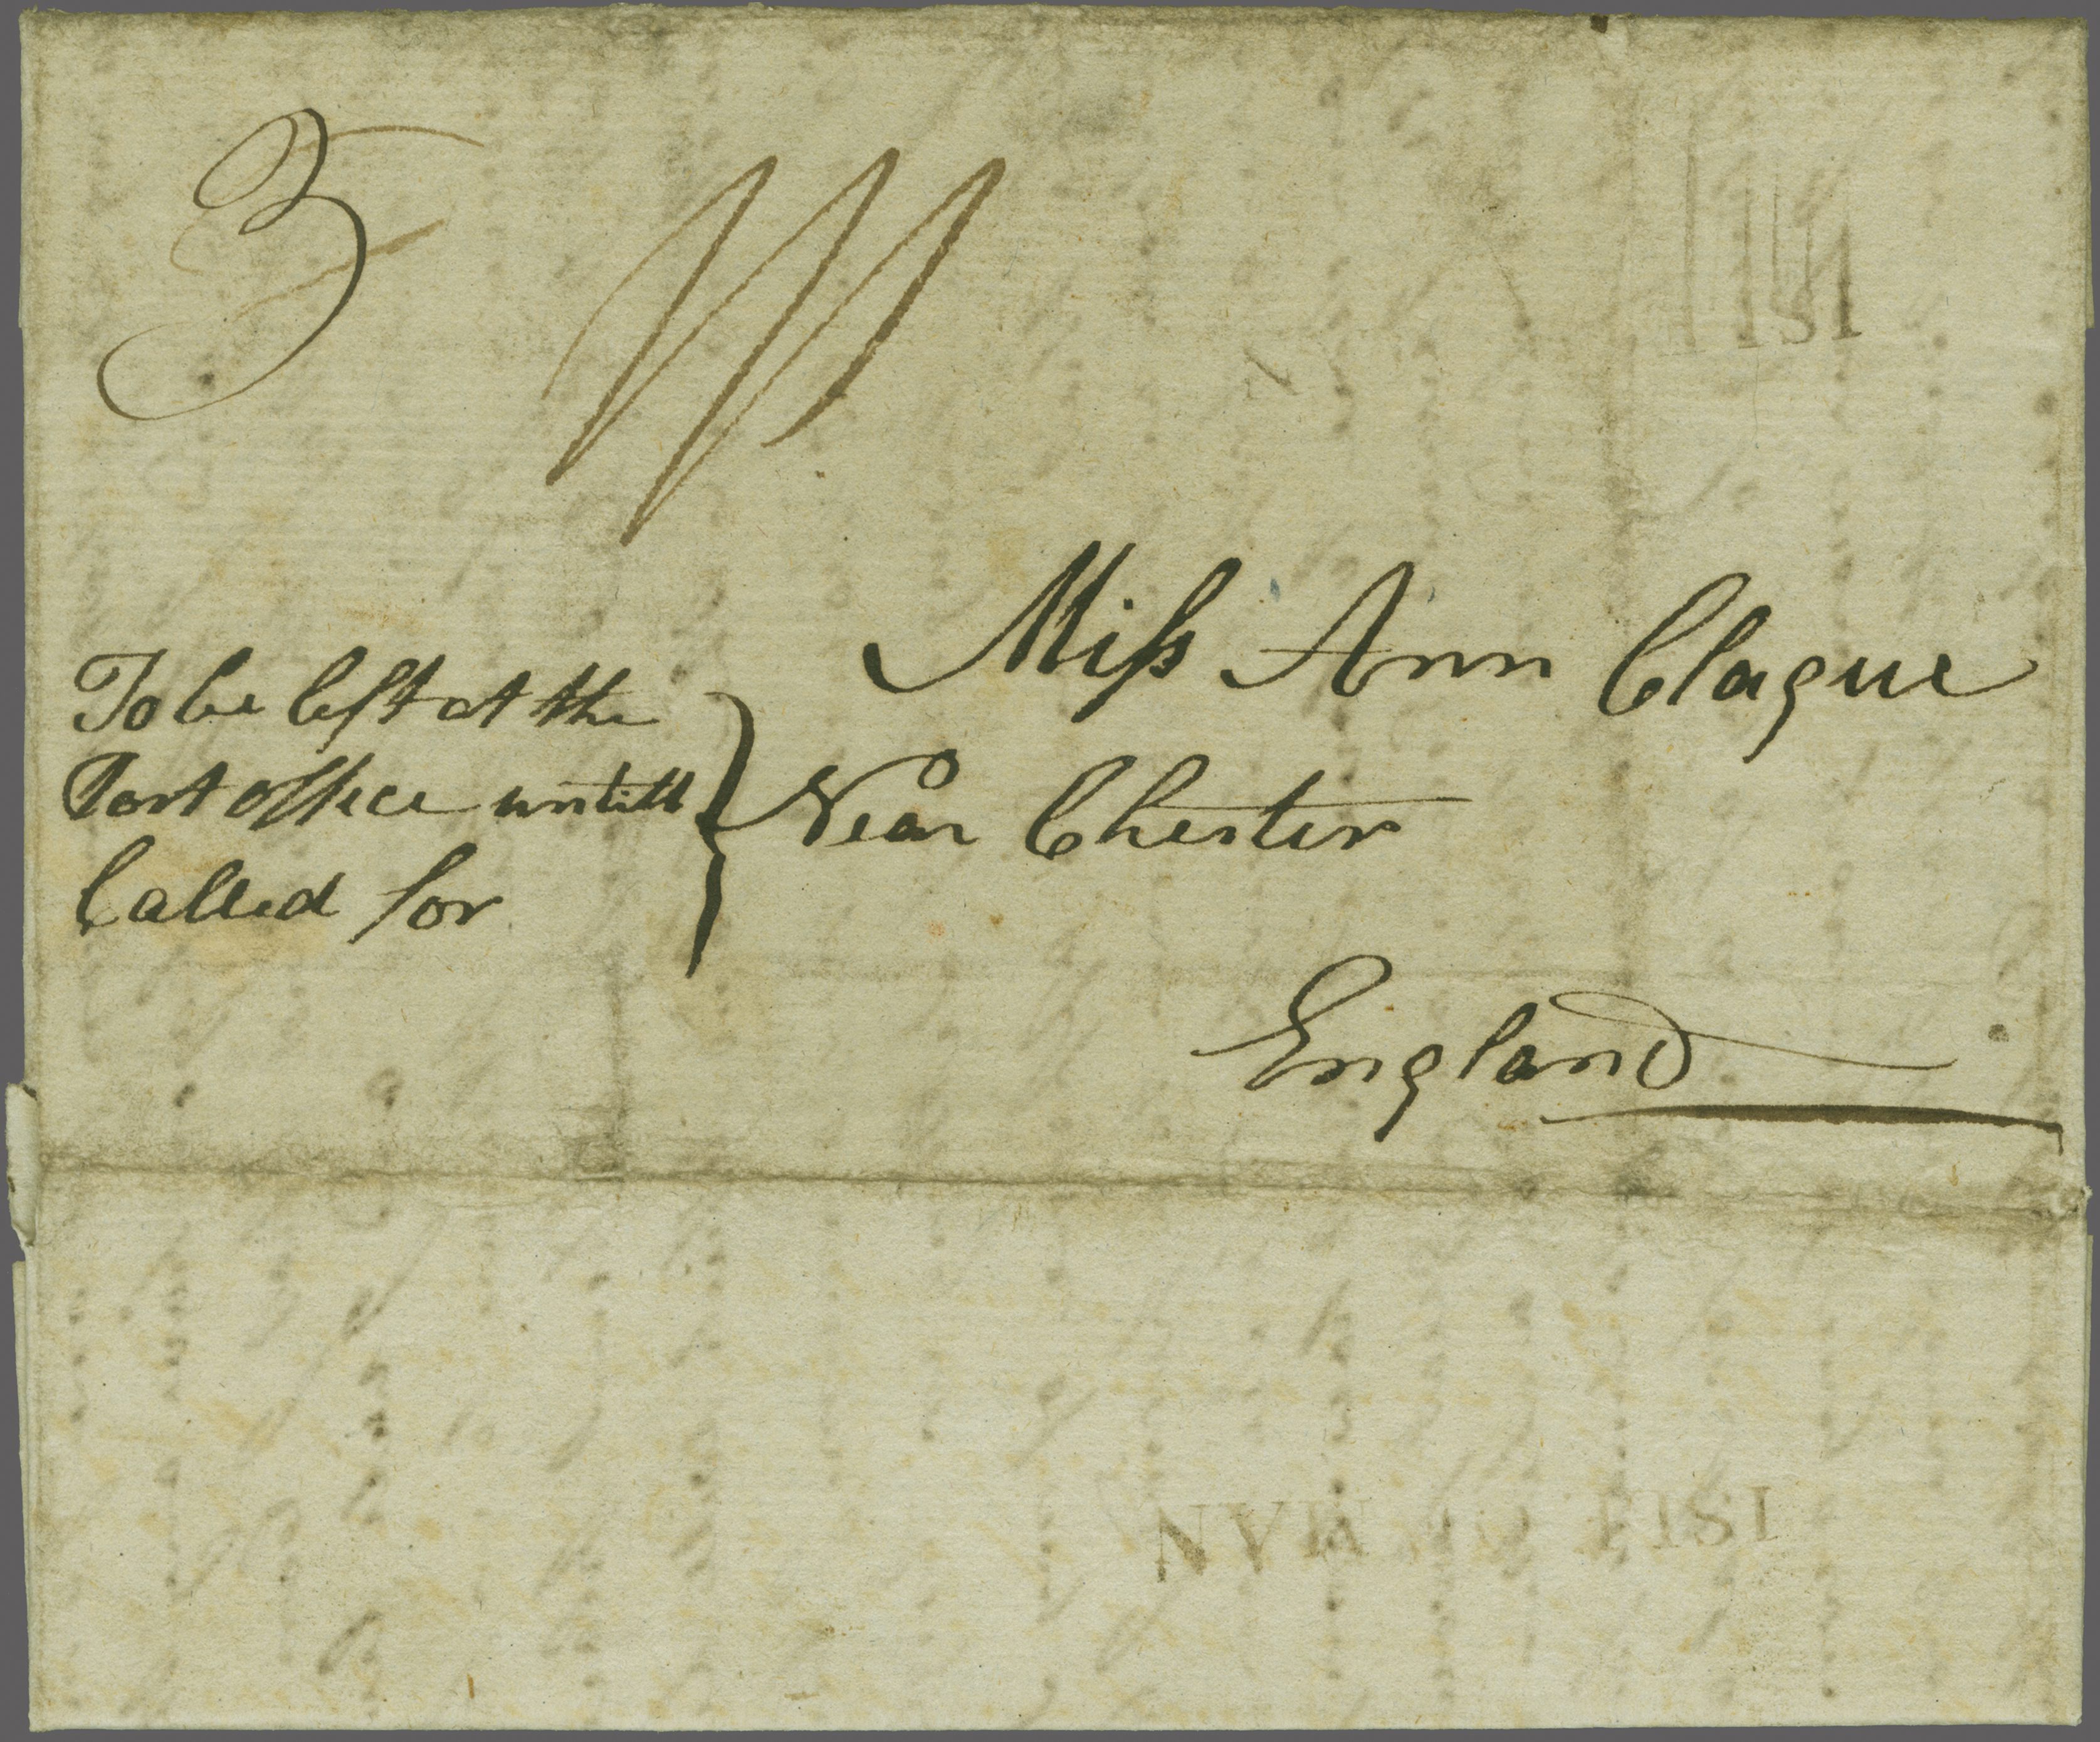 3
Miſs Ann Clague
To be left at the
Post office untill
Called for
Near Chester
England
ISLE OF MAN